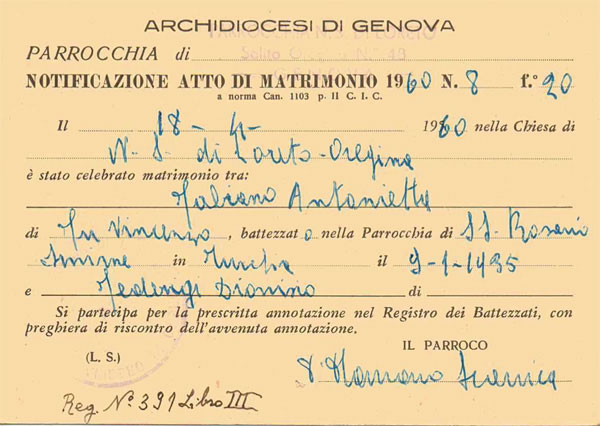 ARCHIDIOCESI DI GENOVA
PARROCCHIA di PARROCCHIA N.S. DI LORETO
Salita Oregina N. 43
NOTIFICAZIONE ATTO DI MATRIMONIO 1960 N. 8 f.° 20
a norma Can. 1103 p. II C. I. C.
Il 18 - 4 - 1960 nella Chiesa di
N. S. di Loreto - Oregina
è stato celebrato matrimonio tra:
Fabiano Antonietta
di fu Vincenzo, battezzato nella Parrocchia di SS. Rosario
Smirne in Turchia il 9-1-1935
e Federigi Dionino di
Si partecipa per la prescritta annotazione nel Registro dei Battezzati, con
preghiera di riscontro dell'avvenuta annotazione.
IL PARROCO
(L. S.)
Reg. N° 391 Libro III